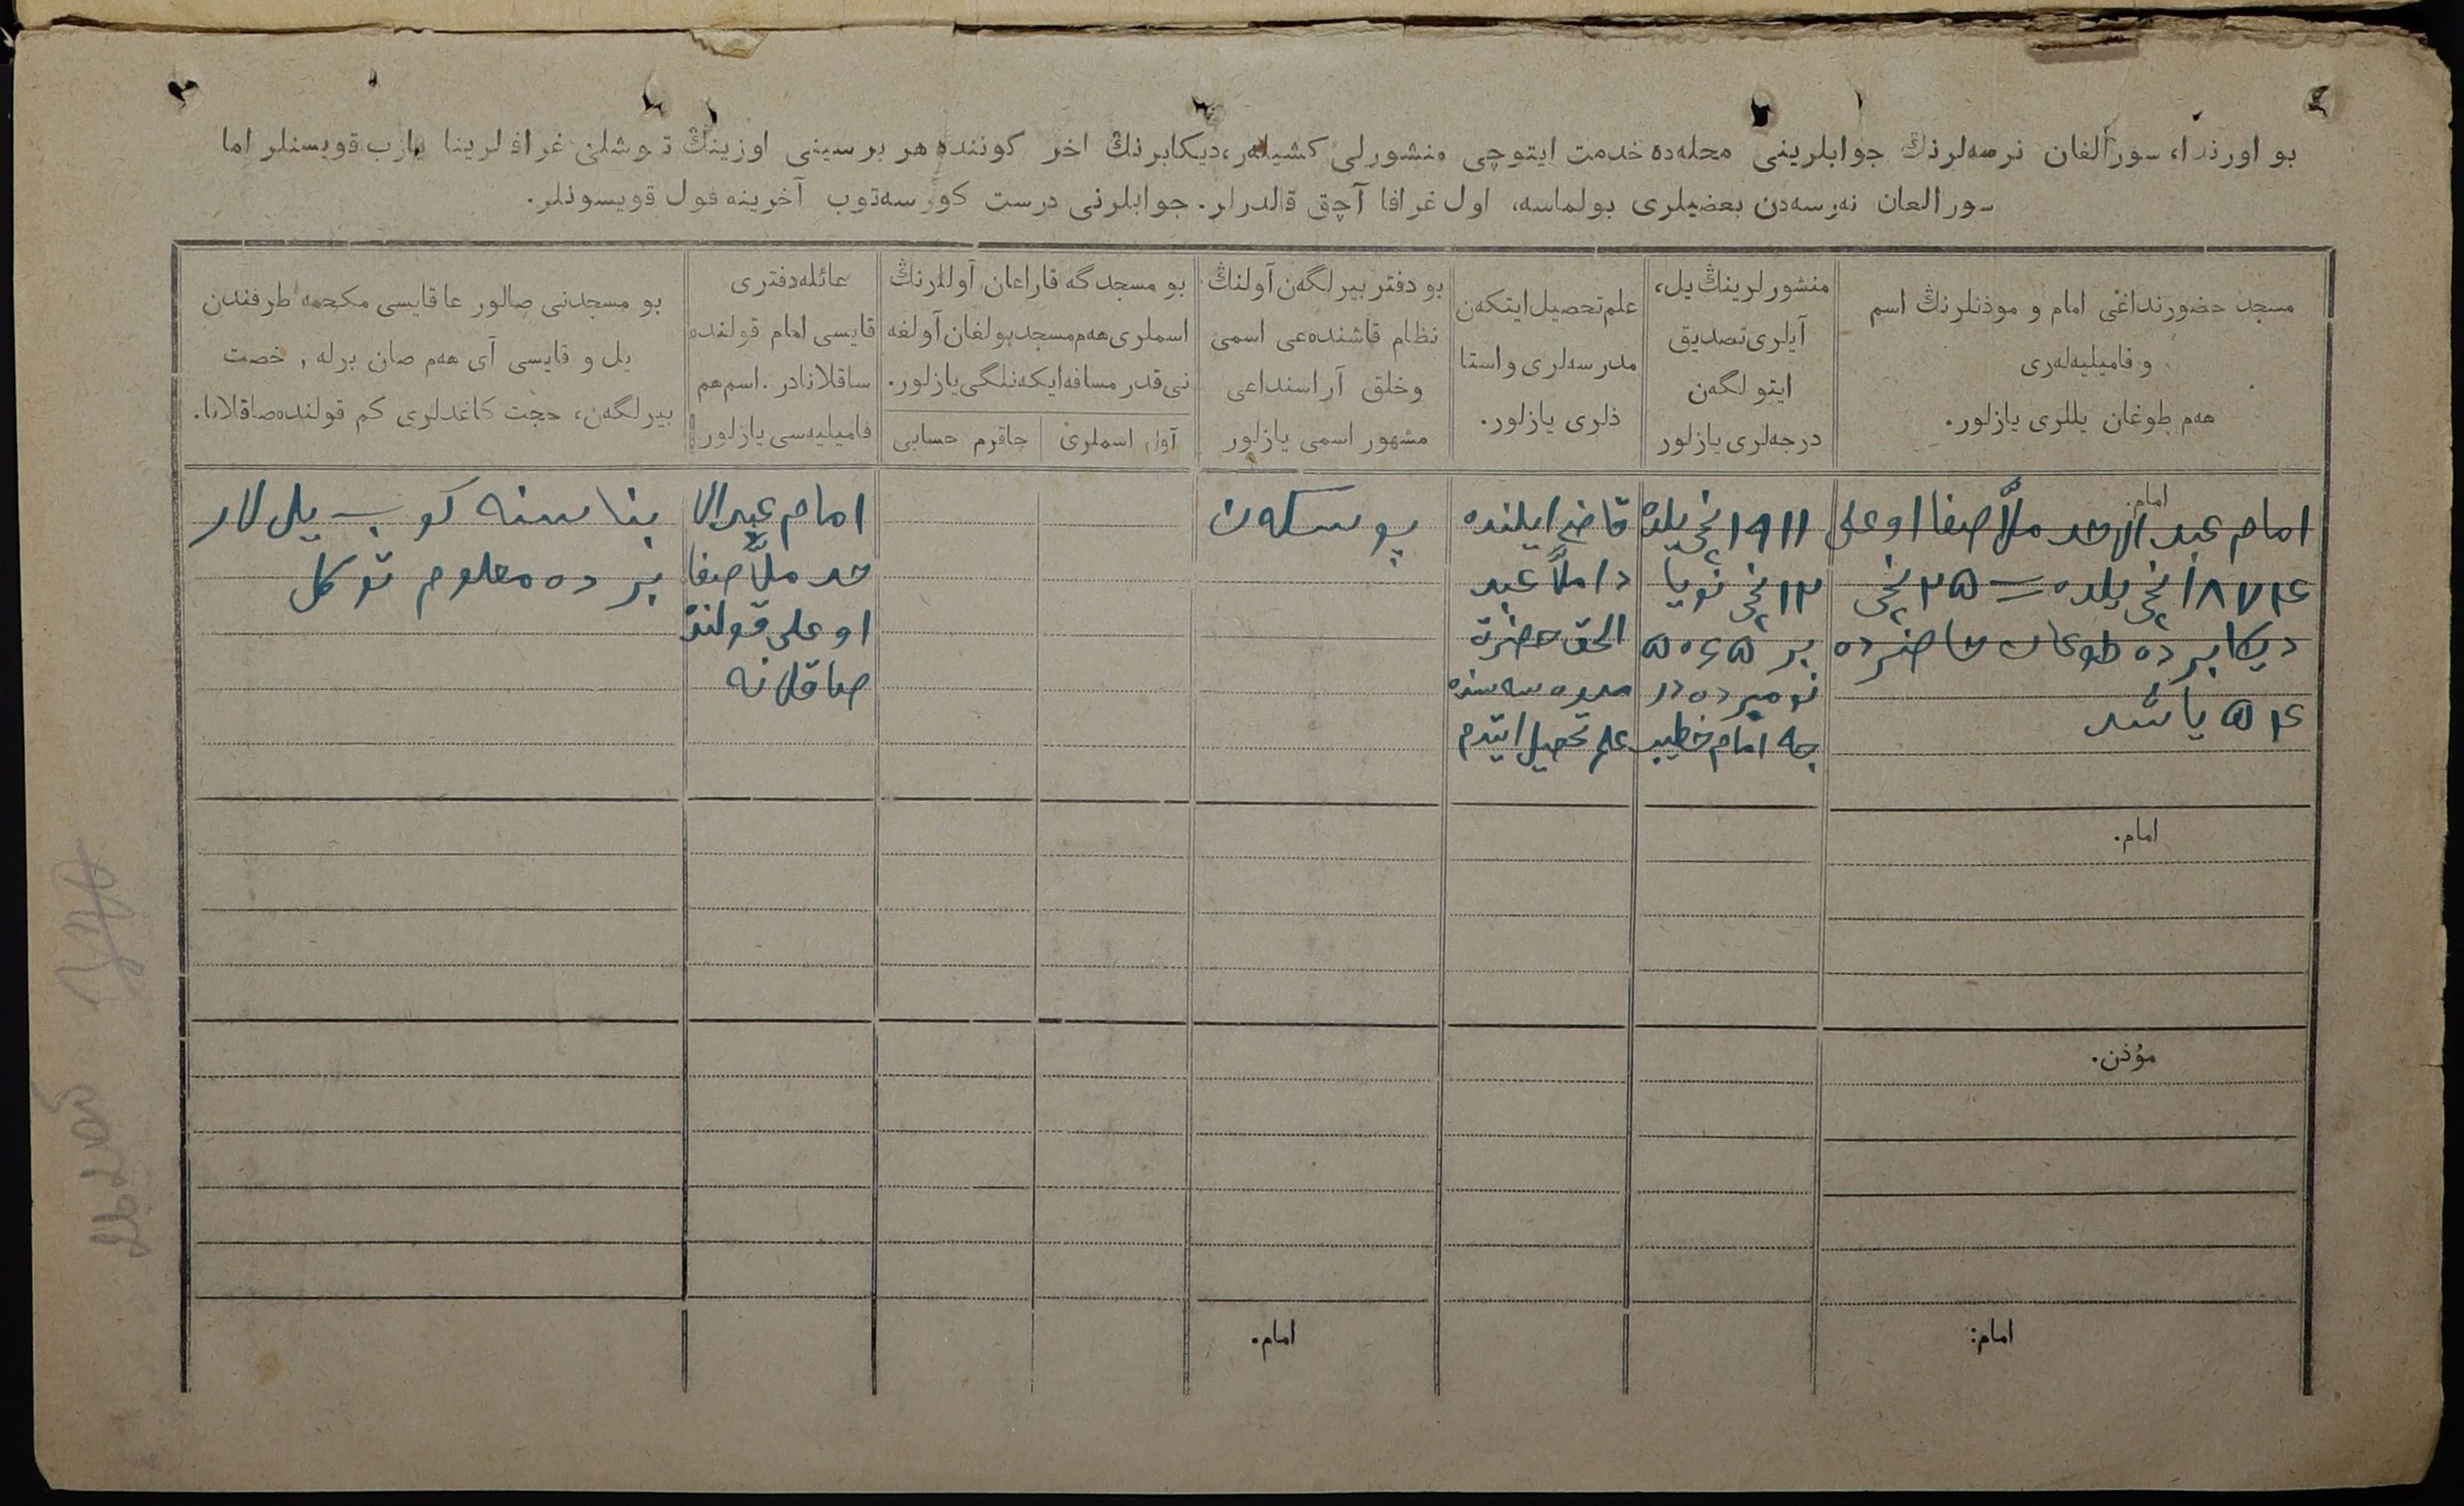 بو اورندا، سورالغان نرسه‌لرنڭ جوابلرینی محله‌ده خدمت ایتوچی منشورلی کشیلەر، دیکابرنڭ اخر کوننده هر برسینی اوزینڭ توشلی غرافلرینا یازب قویسنلر اما
سورالعان نەرسه‌دن بعضیلری بولماسه، اول غرافا آچق قالدرلر. جوابلرنی درست کورسه‌توب آخرینه قول قویسونلر.
مسجد حضورنداغی امام و موذنلرنڭ اسم
و فامیلیه‌لەری
هەم طوغان یللری یازلور.
منشورلرینڭ یل،
آیلری تصدیق
ایتولگەن
درجەلری یازلور
علم تحصیل ایتکەن
مدرسه‌لری و استا
ذلری یازلور.
بو دفتر بیرلگەن آولنڭ
نظام قاشنده‌عی اسمی
وخلق آراسنداعی
مشهور اسمی یازلور
بو مسجدگه قاراعان آوللرنڭ
اسملری هەم مسجد بولغان آولغه
نی قدر مسافه ایکەنلگی یازلور.
آول اسملری
چاقرم حسابی
عائله دفتری
قایسی امام قولنده
ساقلانادر. اسم هم
فامیلیه‌سی یازلور
بو مسجدنی صالور عا قایسی مکحمه طرفندن
یل و قایسی آی هەم صان برله , خصت
بیرلگەن، حجت کاغدلری کم قولنده صاقلانا.
امام.
امام عبد الاحد ملّا صفا اوعلی
١٨٧٤ نچی یلده = ٢٥ نچی
دیکابرده طوعان حاضرده
٥٤ یاشد
١٩١١ نچی یلده
١٢ نچی نویا
بر ٥٤٠٥
نومیرده در
جه امام خطیب
قاضی ایلنده
داملّا عبد
الحق حضرة
مدره سه سنده
علم تحصیل ایتدم
پوسکەن
امام عبد الا
حد ملّا صفا
اوعلی قولنده
صاقلانه
بناسنه کوب یل لار
برده معلوم توکل
امام.
مؤذن.
امام:
امام.